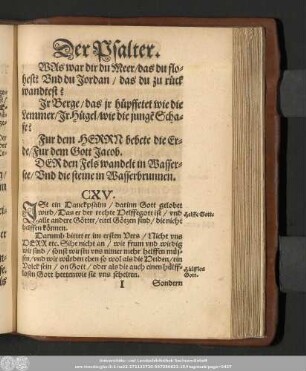 Der Psalter.
WAs war dir du Meer / das du flo-
hest? Vnd du Jordan / das du zu rück
wandtest?
Jr Berge / das jr hüpffetet wie die
Lemmer / Jr Hügel / wie die junge Scha-
fe?
Fur dem HERRN bebete die Er-
de / Fur dem Gott Jacob.
DER den Fels wandelt in Wasser-
see / Vnd die steine in Wasserbrunnen.
CXV.
JSt ein Danckpsalm / darinn Gott gelobet
wird / Das er der rechte Helffegott ist / vnd
alle andere Götter / eitel Götzen sind / die nicht
helffen können.
Darumb bittet er im ersten Vers / Nicht vns
HERR etc. Sihe nicht an / wie frum vnd wirdig
wir sind / sonst würstu vns nimer mehr helffen müs-
sen / vnd wir würden eben so wol als die Heiden / ein
Volck sein / on Gott / oder als die auch einen hülff-
losen Gott hetten wie sie vns schelten.
Helffe Gott.
Hülfflos
Gott.
I
Sondern